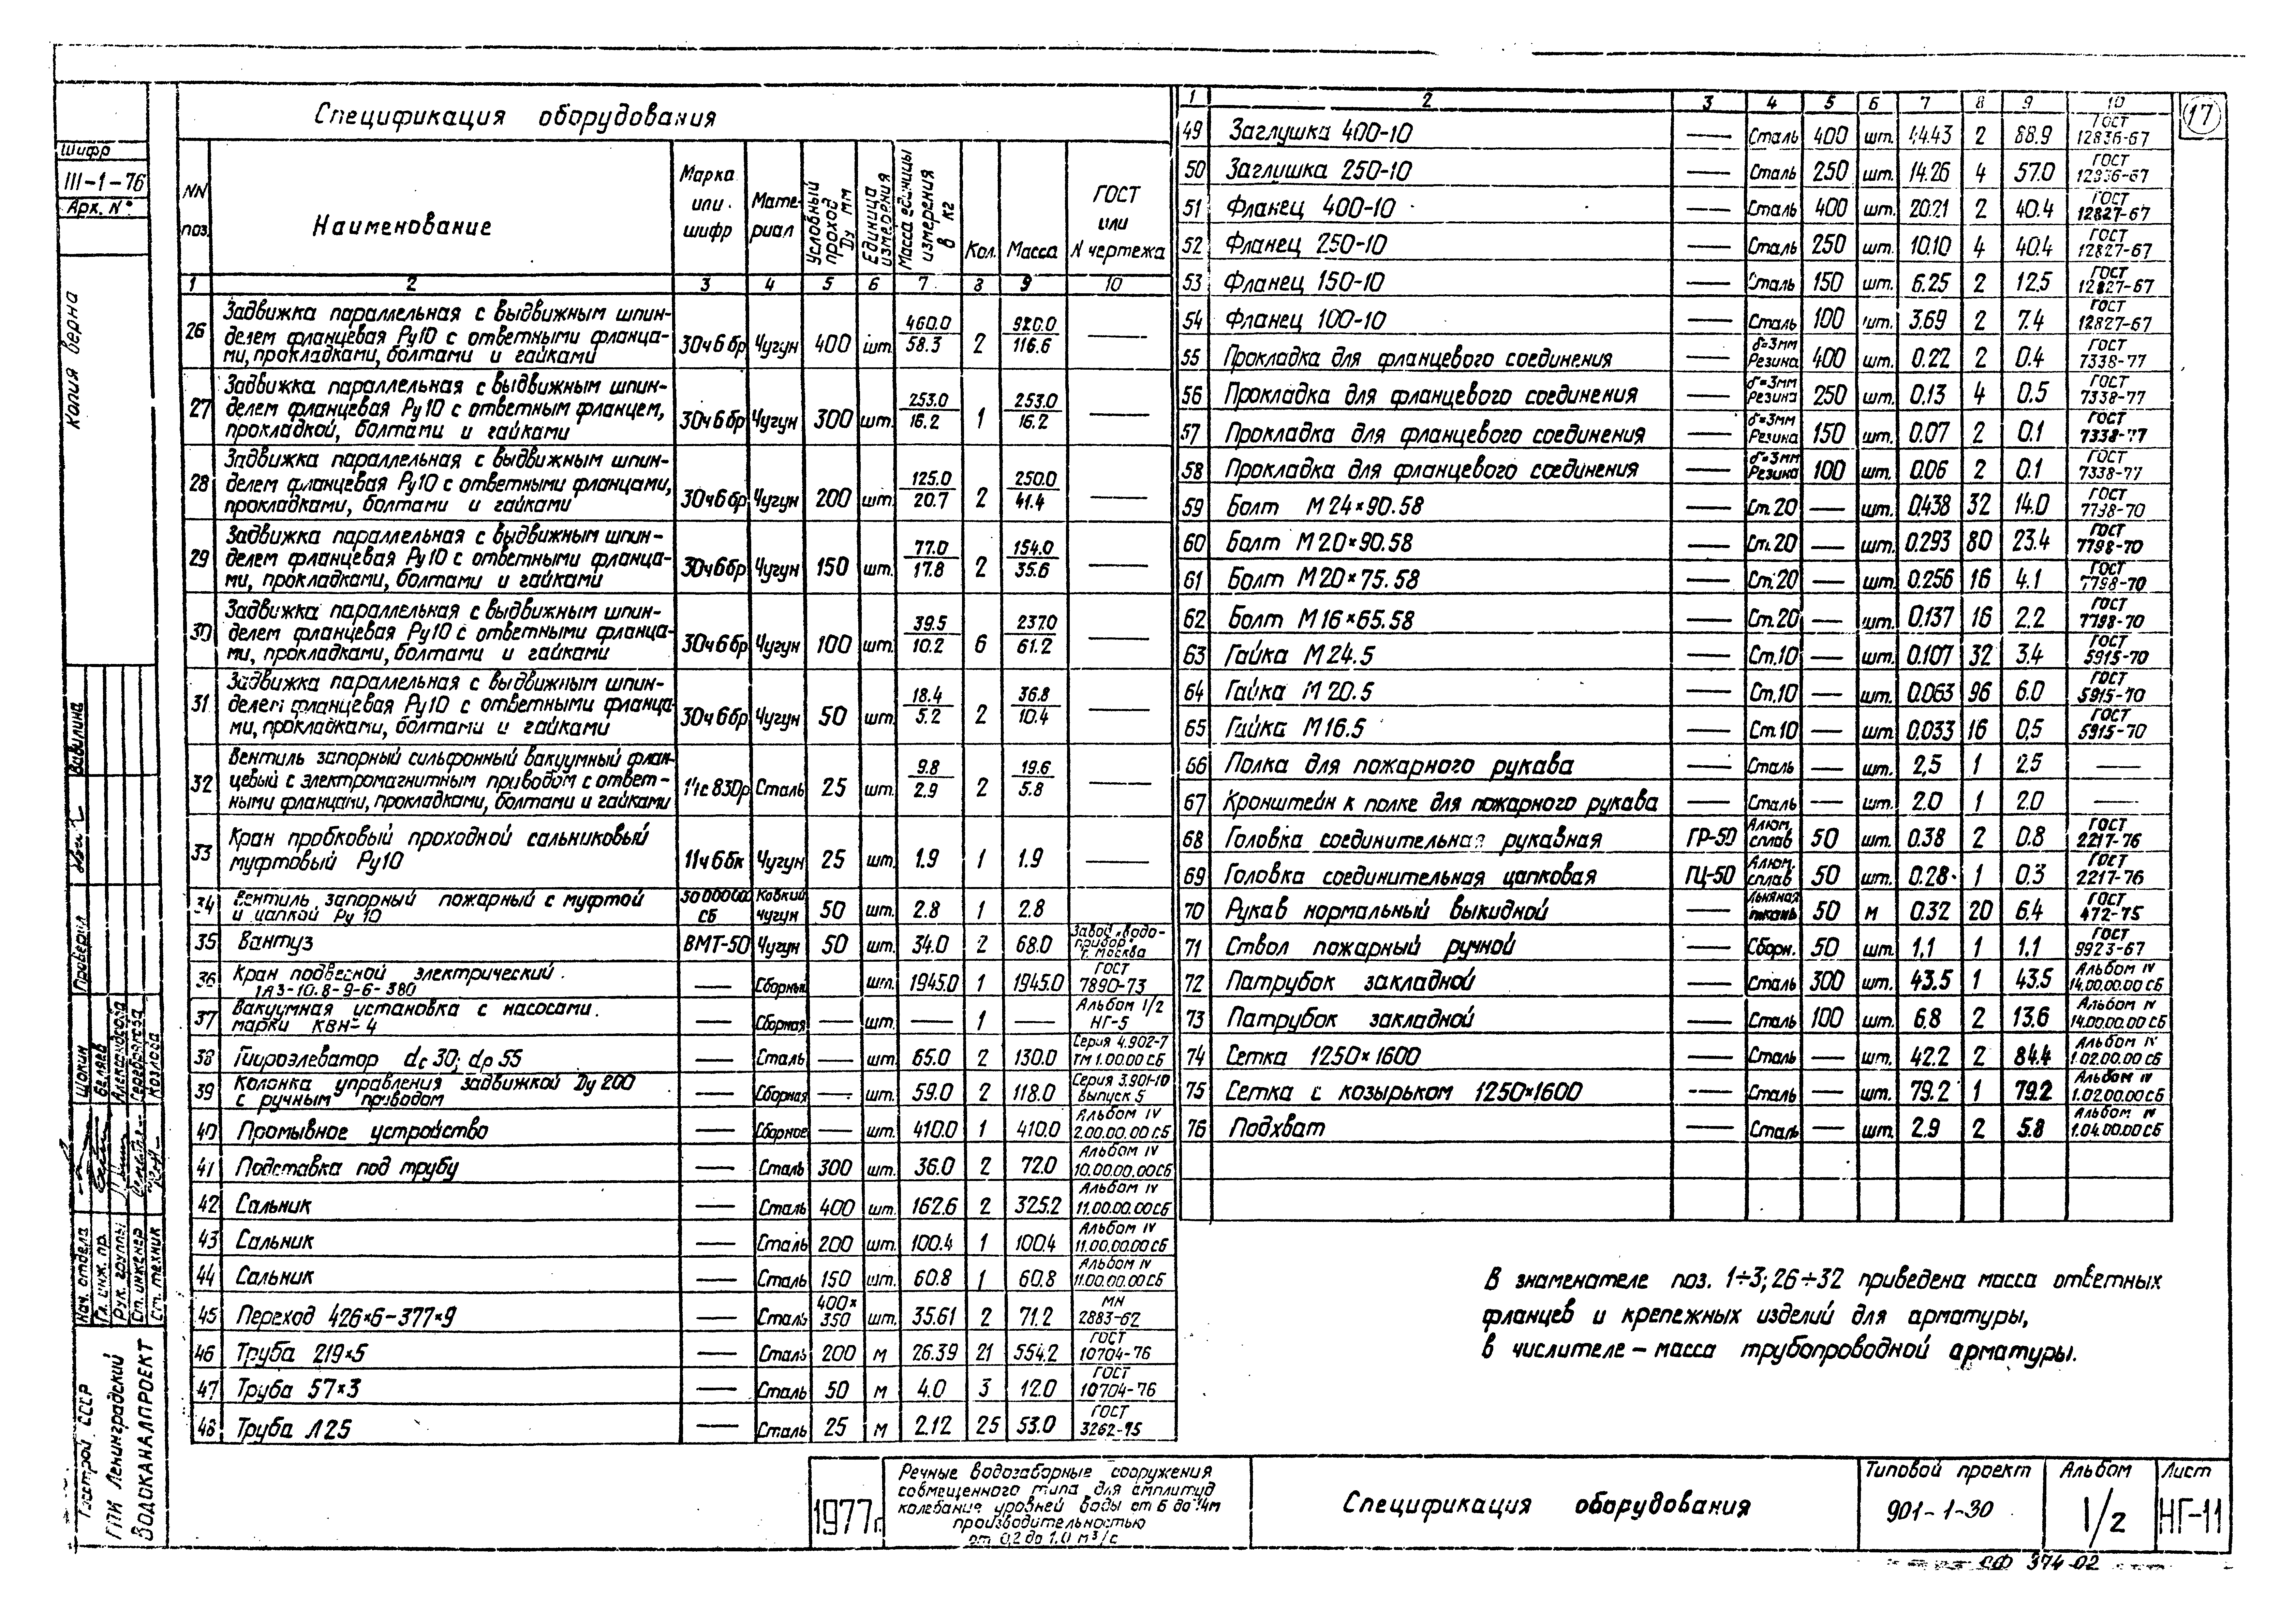 Спецификация оборудования
NN поз. | Наименование | Марка или шифр | Мате-риал | Условный проход Dу мм | Единица измерения | Масса единицы измерения в кг | Кол. | Масса | ГОСТ или N чертежа
1 2 3 4 5 6 7 8 9 10
26 Задвижка параллельная с выдвижным шпин-
делем фланцевая Ру10 с ответными фланца-
ми, прокладками, болтами и гайками 30ч6бр Чугун 400 шт. 460.0/58.3 2 920.0/116.6 —
27 Задвижка параллельная с выдвижным шпин-
делем фланцевая Ру10 с ответным фланцем,
прокладкой, болтами и гайками 30ч6бр Чугун 300 шт. 253.0/16.2 1 253.0/16.2 —
28 Задвижка параллельная с выдвижным шпин-
делем фланцевая Ру10 с ответными фланцами,
прокладками, болтами и гайками 30ч6бр Чугун 200 шт. 125.0/20.7 2 250.0/41.4 —
29 Задвижка параллельная с выдвижным шпин-
делем фланцевая Ру10 с ответными фланца-
ми, прокладками, болтами и гайками 30ч6бр Чугун 150 шт. 77.0/17.8 2 154.0/35.6 —
30 Задвижка параллельная с выдвижным шпин-
делем фланцевая Ру10 с ответными фланца-
ми, прокладками, болтами и гайками 30ч6бр Чугун 100 шт. 39.5/10.2 6 237.0/61.2 —
31 Задвижка параллельная с выдвижным шпин-
делем фланцевая Ру10 с ответными фланца-
ми, прокладками, болтами и гайками 30ч6бр Чугун 50 шт. 18.4/5.2 2 36.8/10.4 —
32 Вентиль запорный сильфонный вакуумный флан-
цевый с электромагнитным приводом с ответ-
ными фланцами, прокладками, болтами и гайками 14с830р Сталь 25 шт. 9.8/2.9 2 19.6/5.8 —
33 Кран пробковый проходной сальниковый
муфтовый Ру10 11ч6бк Чугун 25 шт. 1.9 1 1.9 —
34 Вентиль запорный пожарный с муфтой
и цапкой Ру 10 50000000 СБ Ковкий чугун 50 шт. 2.8 1 2.8
35 Вантуз ВМТ-50 Чугун 50 шт. 34.0 2 68.0 Завод „Водо-прибор" г. Москва
36 Кран подвесной электрический
1А3-10.8-9-6-380 — Сборный шт. 1945.0 1 1945.0 ГОСТ 7890-73
37 Вакуумная установка с насосами
марки КВН-4 — Сборная — шт. — 1 — Альбом 1/2 НГ-5
38 Гидроэлеватор dc 30; dр 55 — Сталь — шт. 65.0 2 130.0 Серия 4.902-7 ТМ 1.00.00 СБ
39 Колонка управления задвижкой Dу 200
с ручным приводом — Сборная — шт. 59.0 2 118.0 Серия 3.901-10 Выпуск 5
40 Промывное устройство — Сборное — шт. 410.0 1 410.0 Альбом IV 2.00.00.00 СБ
41 Подставка под трубу — Сталь 300 шт. 36.0 2 72.0 Альбом IV 10.00.00.00СБ
42 Сальник — Сталь 400 шт. 162.6 2 325.2 Альбом IV 11.00.00.00СБ
43 Сальник — Сталь 200 шт. 100.4 1 100.4 Альбом IV 11.00.00.00СБ
44 Сальник — Сталь 150 шт. 60.8 1 60.8 Альбом IV 11.00.00.00СБ
45 Переход 426×6-377×9 — Сталь 400×350 шт. 35.61 2 71.2 МН 2883-62
46 Труба 219×5 — Сталь 200 м 26.39 21 554.2 ГОСТ 10704-76
47 Труба 57×3 — Сталь 50 м 4.0 3 12.0 ГОСТ 10704-76
48 Труба Л25 — Сталь 25 м 2.12 25 53.0 ГОСТ 3262-75
1 2 3 4 5 6 7 8 9 10
17
49 Заглушка 400-10 — Сталь 400 шт. 44.43 2 88.9 ГОСТ 12836-67
50 Заглушка 250-10 — Сталь 250 шт. 14.26 4 57.0 ГОСТ 12836-67
51 Фланец 400-10 — Сталь 400 шт. 20.21 2 40.4 ГОСТ 12827-67
52 Фланец 250-10 — Сталь 250 шт. 10.10 4 40.4 ГОСТ 12827-67
53 Фланец 150-10 — Сталь 150 шт. 6.25 2 12.5 ГОСТ 12827-67
54 Фланец 100-10 — Сталь 100 шт. 3.69 2 7.4 ГОСТ 12827-67
55 Прокладка для фланцевого соединения — δ=3мм Резина 400 шт. 0.22 2 0.4 ГОСТ 7338-77
56 Прокладка для фланцевого соединения — δ=3мм Резина 250 шт. 0.13 4 0.5 ГОСТ 7338-77
57 Прокладка для фланцевого соединения — δ=3мм Резина 150 шт. 0.07 2 0.1 ГОСТ 7338-77
58 Прокладка для фланцевого соединения — δ=3мм Резина 100 шт. 0.06 2 0.1 ГОСТ 7338-77
59 Болт М24×90.58 — Ст.20 — шт. 0.438 32 14.0 ГОСТ 7798-70
60 Болт М20×90.58 — Ст.20 — шт. 0.293 80 23.4 ГОСТ 7798-70
61 Болт М20×75.58 — Ст.20 — шт. 0.256 16 4.1 ГОСТ 7798-70
62 Болт М16×65.58 — Ст.20 — шт. 0.137 16 2.2 ГОСТ 7798-70
63 Гайка М24.5 — Ст.10 — шт. 0.107 32 3.4 ГОСТ 5915-70
64 Гайка М20.5 — Ст.10 — шт. 0.063 96 6.0 ГОСТ 5915-70
65 Гайка М16.5 — Ст.10 — шт. 0.033 16 0,5 ГОСТ 5915-70
66 Полка для пожарного рукава — Сталь — шт. 2,5 1 2.5 —
67 Кронштейн к полке для пожарного рукава — Сталь — шт. 2.0 1 2.0 —
68 Головка соединительная рукавная ГР-50 Алюм. сплав 50 шт. 0.38 2 0.8 ГОСТ 2217-76
69 Головка соединительная цапковая ГЦ-50 Алюм. сплав 50 шт. 0.28 1 0.3 ГОСТ 2217-76
70 Рукав нормальный выкидной — Льняная ткань 50 м 0.32 20 6.4 ГОСТ 472-75
71 Ствол пожарный ручной — Сборн. 50 шт. 1,1 1 1.1 ГОСТ 9923-67
72 Патрубок закладной — Сталь 300 шт. 43.5 1 43.5 Альбом IV 14.00.00.00 СБ
73 Патрубок закладной — Сталь 100 шт. 6.8 2 13.6 Альбом IV 14.00.00.00 СБ
74 Сетка 1250×1600 — Сталь — шт. 42.2 2 84.4 Альбом IV 1.02.00.00 СБ
75 Сетка с козырьком 1250×1600 — Сталь — шт. 79.2 1 79.2 Альбом IV 1.02.00.00СБ
76 Подхват — Сталь — шт. 2.9 2 5.8 Альбом IV 1.04.00.00СБ
В знаменателе поз. 1÷3; 26÷32 приведена масса ответных
фланцев и крепежных изделий для арматуры,
в числителе – масса трубопроводной арматуры.
Шифр
III-1-76
Арх. N°
Копия верна
Вавилина
Проверил
Нач. отдела Щокин
Гл. инж. пр. Беляев
Рук. группы Александрова
Ст. инженер Серебрякова
Ст. техник Козлова
Госстрой СССР
ГПИ Ленинградский
ВОДОКАНАЛПРОЕКТ
1977г.
Речные водозаборные сооружения
совмещенного типа для амплитуд
колебания уровней воды от 6 до 14м
производительностью
от 0,2 до 1.0 м³/с
Спецификация оборудования
Типовой проект
901-1-30
Альбом
1/2
Лист
НГ-11
СФ 374-02